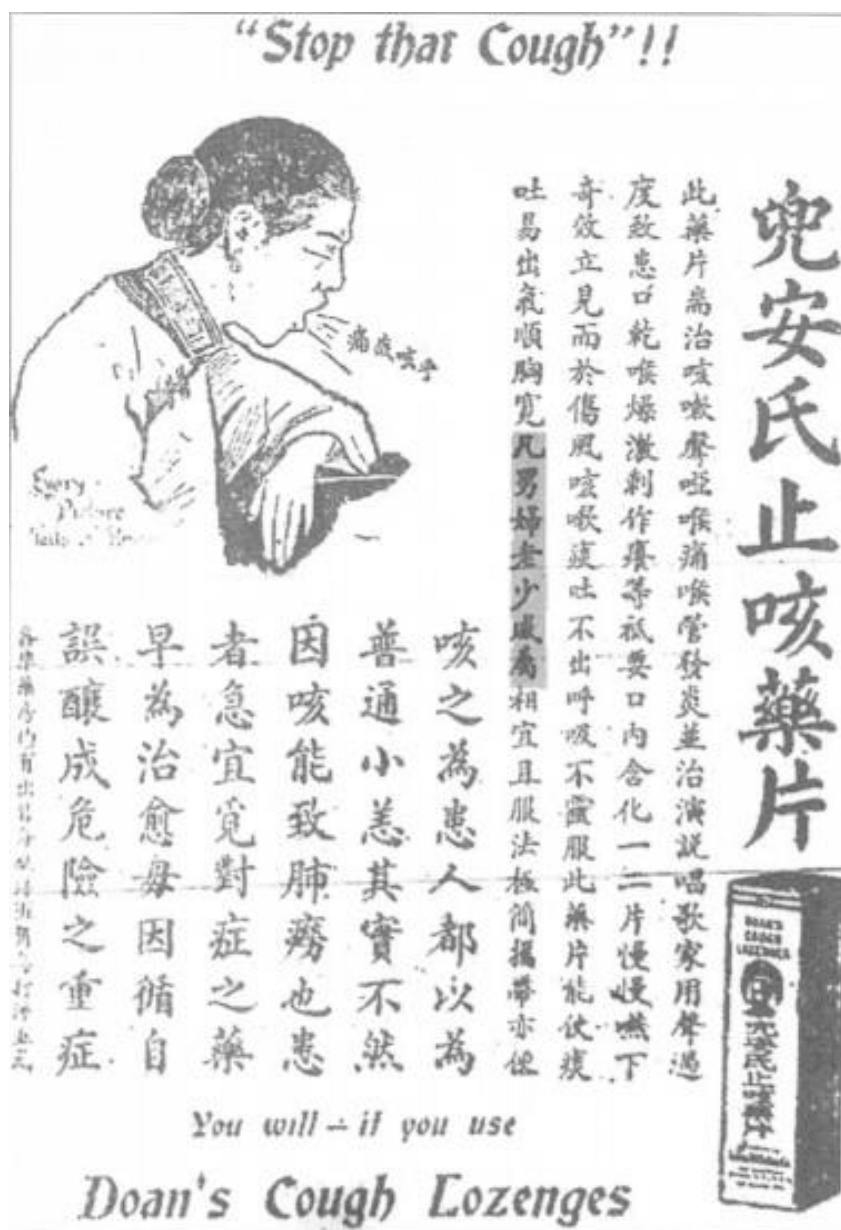 "Stop that Cough"!!
兜安氏止咳藥片
此藥片耑治咳嗽聲啞喉痛喉管發炎並治演説唱歌家用聲過
度致患口乾喉燥激刺作癢等祗要口內含化一二片慢慢嚥下
奇效立見而於傷風咳嗽痰吐不出呼吸不靈服此藥片能使痰
吐易出氣順胸寬凡男婦老少咸為相宜且服法極簡攜帶亦便
痛哉咳乎
Every
Picture
咳之為患人都以為
普通小恙其實不然
因咳能致肺癆也患
者急宜覓對症之藥
早為治愈毋因循自
誤釀成危險之重症
DOAN'S
COUGH
LOZENGES
兜安氏止咳藥片
You will - if you use
Doan's Cough Lozenges